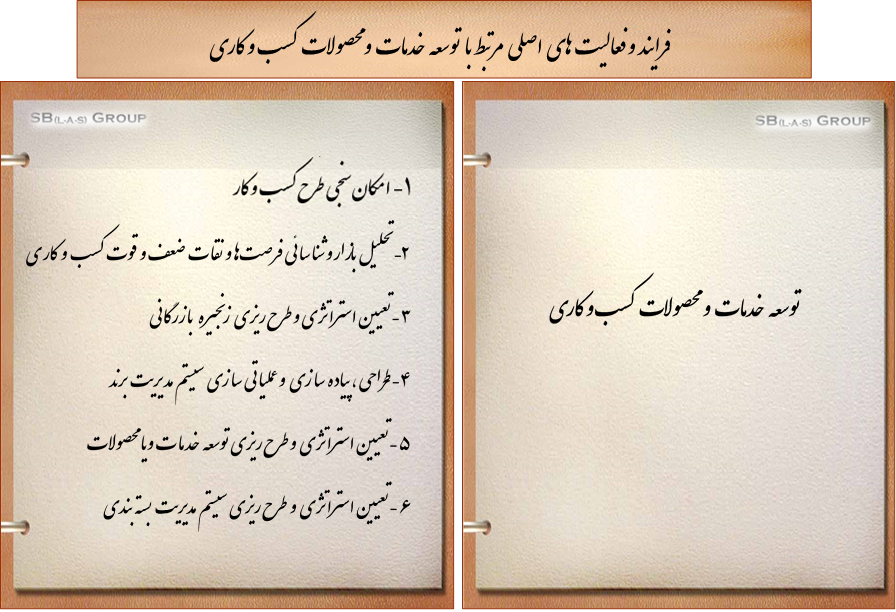 فرایند و فعالیت های اصلی مرتبط با توسعه خدمات و محصولات کسب و کاری
SB(L-A-S) GROUP
توسعه خدمات و محصولات کسب و کاری
SB(L-A-S) GROUP
۱- امکان سنجی طرح کسب و کار
۲- تحلیل بازار و شناسائی فرصت ها و نقات ضعف و قوت کسب و کاری
۳- تعیین استراتژی و طرح ریزی زنجیره بازرگانی
۴- طراحی، پیاده سازی و عملیاتی سازی سیستم مدیریت برند
۵- تعیین استراتژی و طرح ریزی توسعه خدمات ویا محصولات
۶- تعیین استراتژی و طرح ریزی سیستم مدیریت بسته بندی